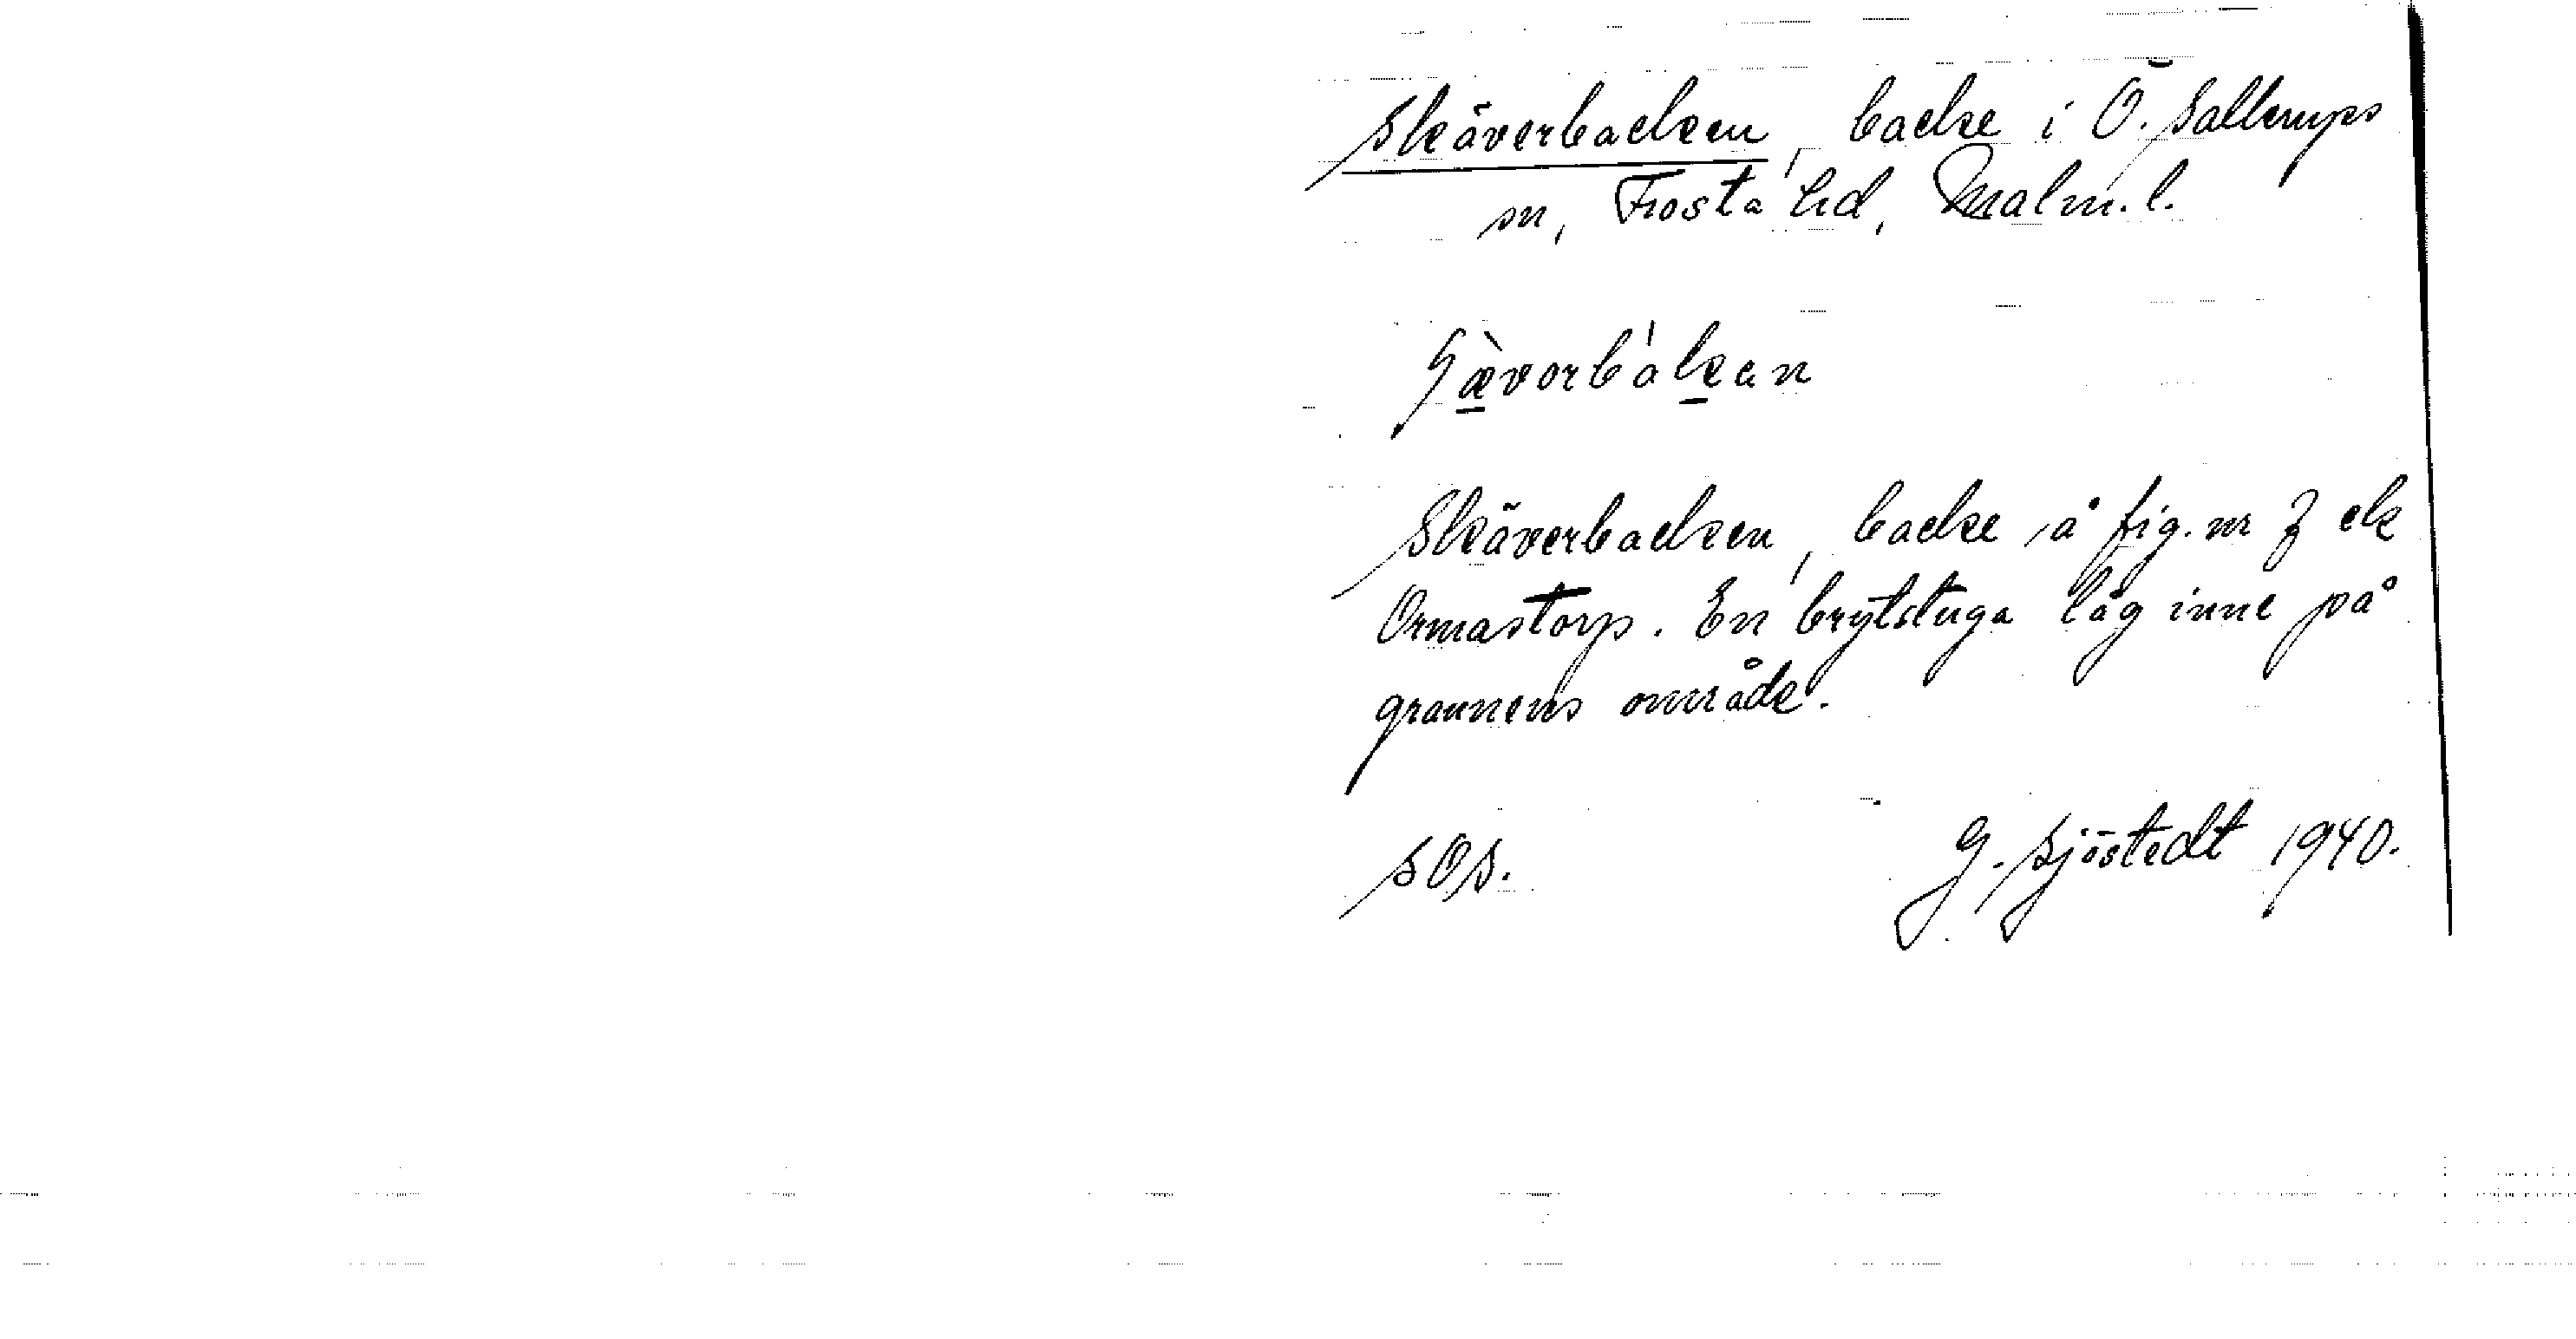 Skäverbacken, backe i Ö. Sallerups
sn, Frosta hd, Malm. l.
Skäverbacken, backe å fig. nr 7 ek
Ormastorp. En brytstuga låg inne på
grannens område.
SOS. G. Sjöstedt 1940.